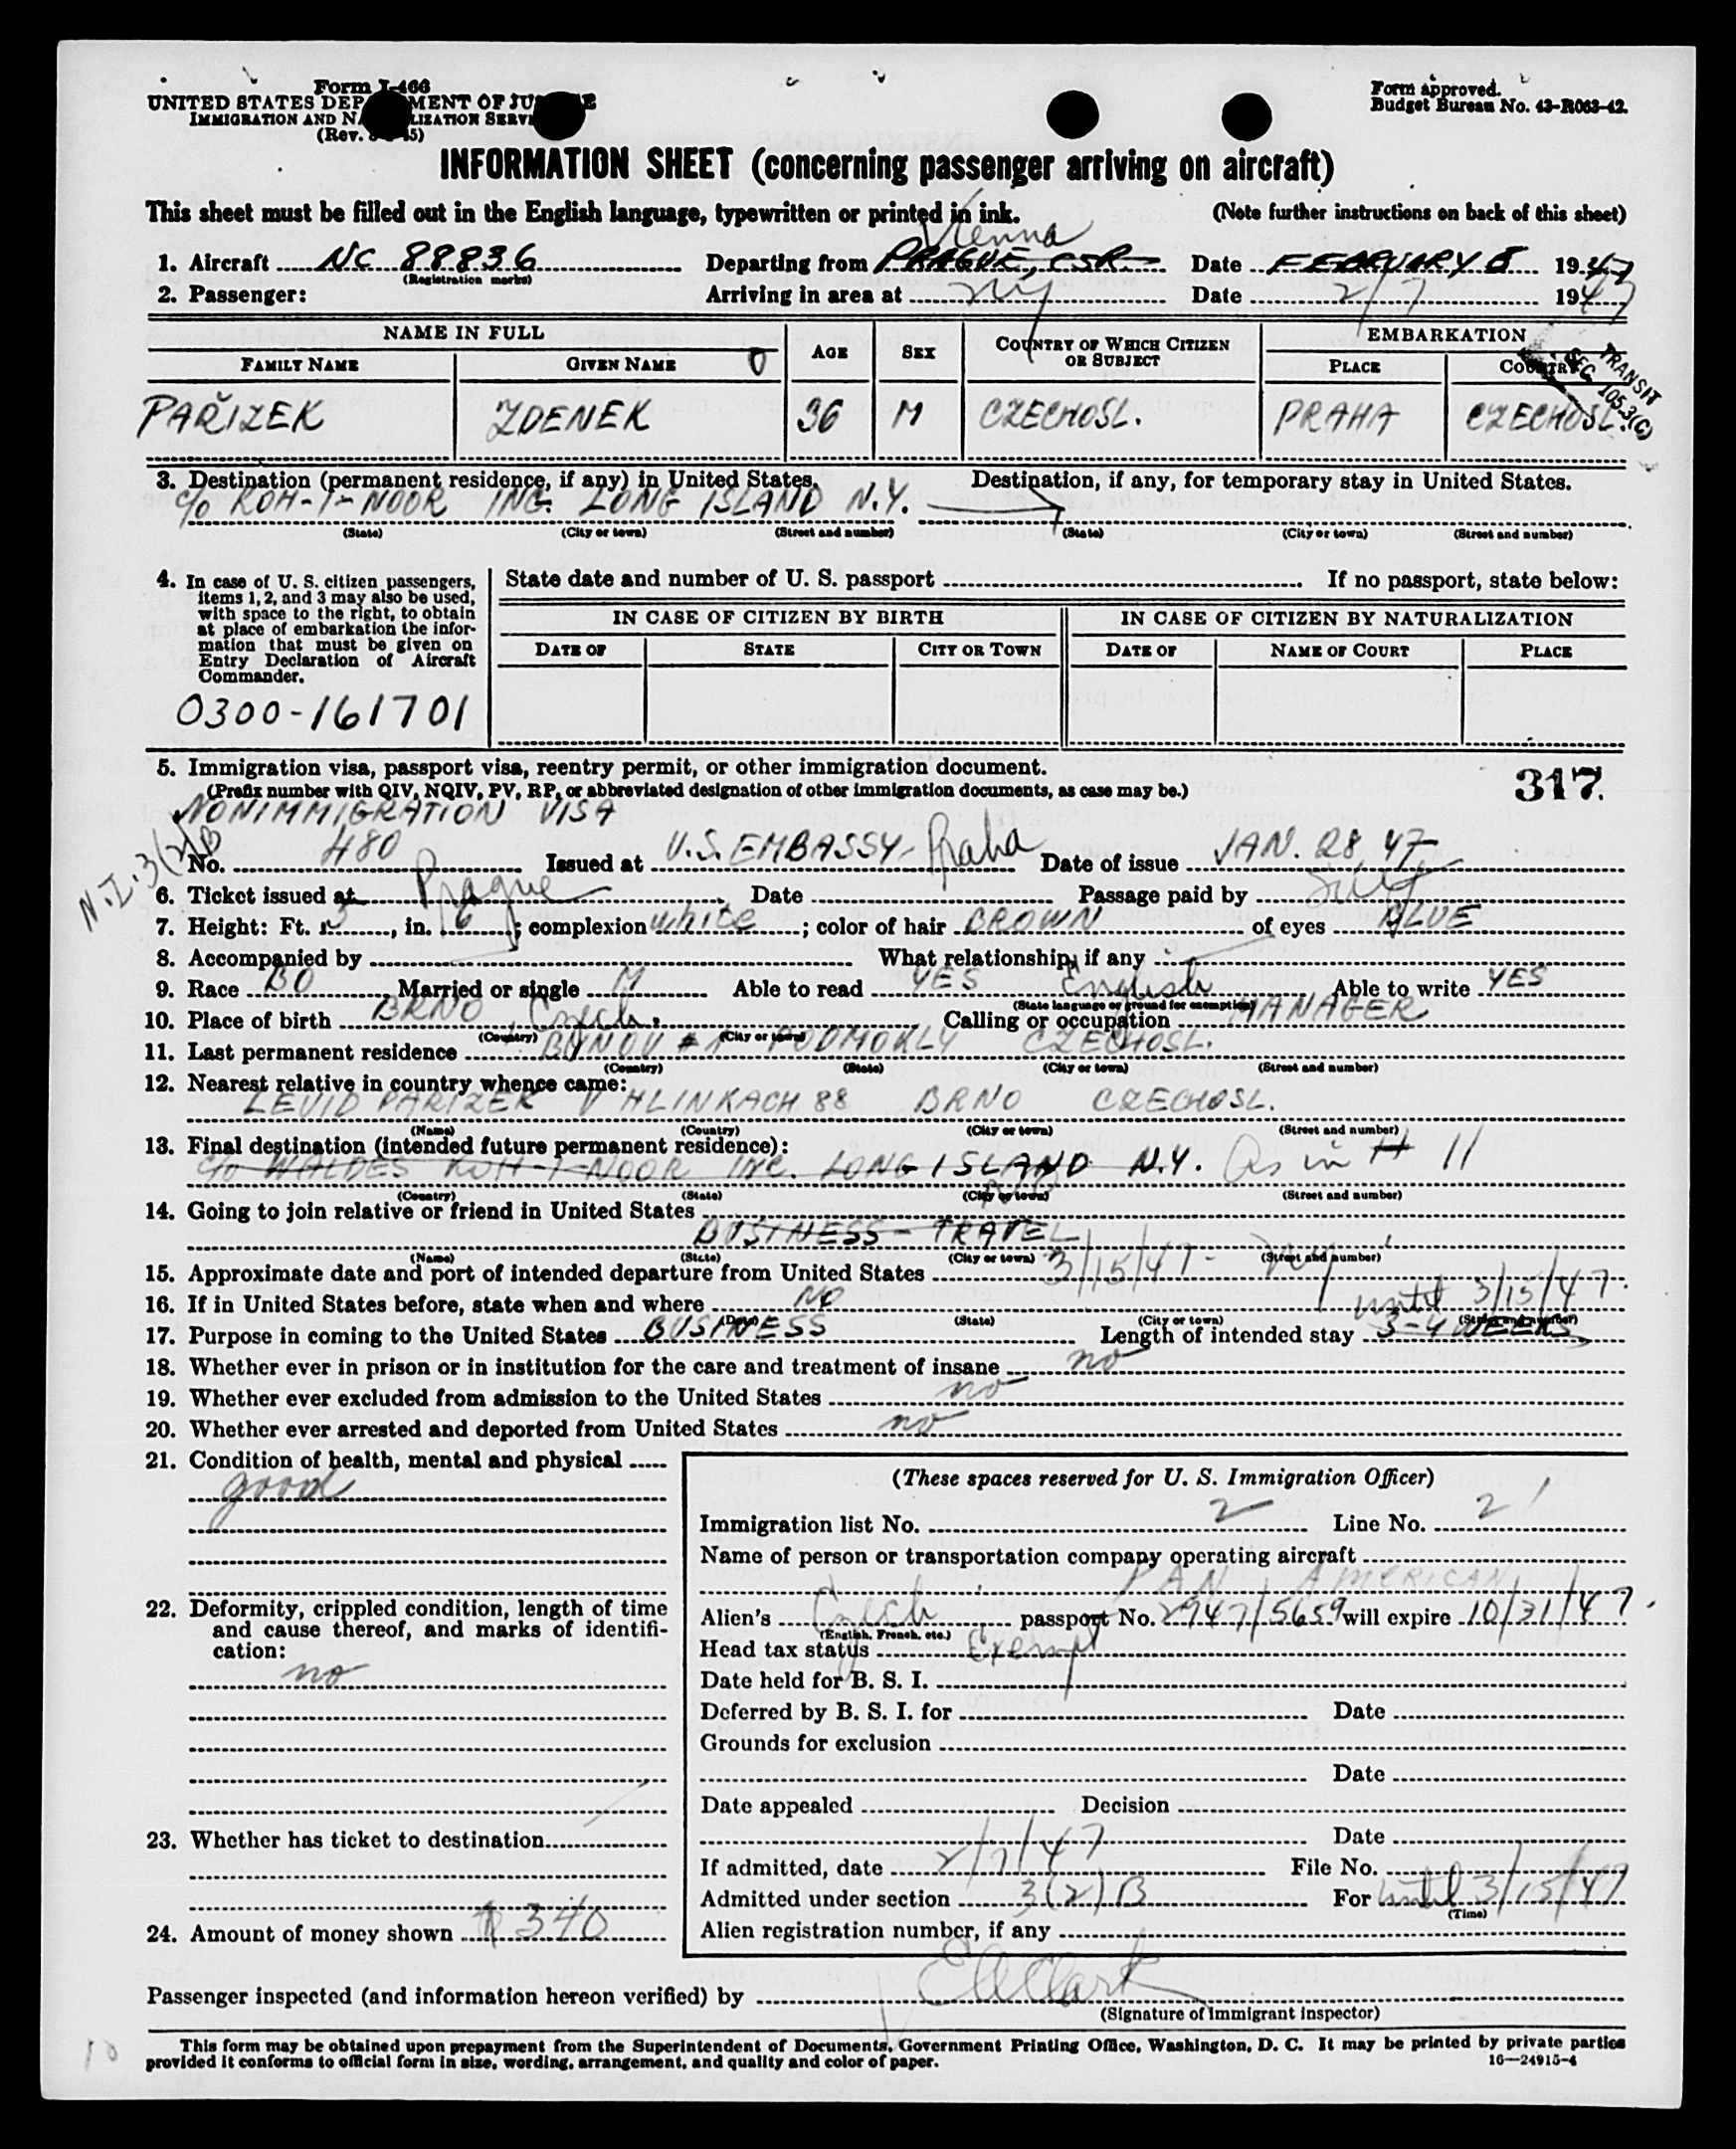 Form I-466
UNITED STATES DEP MENT OF JU E
IMMIGRATION AND N LIZATION SERVI
(Rev. 45)
Form approved.
Budget Bureau No. 43-R063-42.
INFORMATION SHEET (concerning passenger arriving on aircraft)
This sheet must be filled out in the English language, typewritten or printed in ink. (Note further instructions on back of this sheet)
Vienna
1. Aircraft NC 88836 Departing from PRAGUE, CSR. Date FEBRUARY 1947
(Registration marks)
2. Passenger: Arriving in area at NY Date 2/7 1947
NAME IN FULL AGE SEX COUNTRY OF WHICH CITIZEN OR SUBJECT EMBARKATION
FAMILY NAME GIVEN NAME PLACE COUNTRY
TRANSIT
SEC. 105.3(C)
PAŘIZEK ZDENEK 36 M CZECHOSL. PRAHA CZECHOSL.
3. Destination (permanent residence, if any) in United States. Destination, if any, for temporary stay in United States.
c/o KOH-I-NOOR INC. LONG ISLAND N.Y.
(State) (City or town) (Street and number) (State) (City or town) (Street and number)
4. In case of U. S. citizen passengers, items 1, 2, and 3 may also be used, with space to the right, to obtain at place of embarkation the information that must be given on Entry Declaration of Aircraft Commander.
0300-161701
State date and number of U. S. passport If no passport, state below:
IN CASE OF CITIZEN BY BIRTH IN CASE OF CITIZEN BY NATURALIZATION
DATE OF STATE CITY OR TOWN DATE OF NAME OF COURT PLACE
5. Immigration visa, passport visa, reentry permit, or other immigration document.
317.
(Prefix number with QIV, NQIV, PV, RP, or abbreviated designation of other immigration documents, as case may be.)
NONIMMIGRATION VISA
N.I. 3(2)B
No. 480 Issued at U.S. EMBASSY - Praha Date of issue JAN. 28, 47
6. Ticket issued at Prague Date Passage paid by Self
7. Height: Ft. 5, in. 6; complexion white; color of hair BROWN of eyes BLUE
8. Accompanied by What relationship, if any
9. Race BO Married or single M Able to read YES English Able to write YES
(State language or ground for exemption)
10. Place of birth BRNO, Czech. Calling or occupation MANAGER
(Country) (City or town)
11. Last permanent residence BYNOV #1 PODMOKLY CZECHOSL.
(Country) (State) (City or town) (Street and number)
12. Nearest relative in country whence came:
PARIZEK V HLINKACH 88 BRNO CZECHOSL.
(Name) (Country) (City or town) (Street and number)
13. Final destination (intended future permanent residence):
c/o WALDES KOH-I-NOOR INC. LONG ISLAND N.Y. As in # 11
(Country) (State) (City or town) (Street and number)
14. Going to join relative or friend in United States
BUSINESS - TRAVEL
(Name) (State) (City or town) (Street and number)
15. Approximate date and port of intended departure from United States 3/15/47 - NY
16. If in United States before, state when and where NO
until 3/15/47.
(Date) (State) (City or town) (Street and number)
17. Purpose in coming to the United States BUSINESS Length of intended stay 3-4 WEEKS
18. Whether ever in prison or in institution for the care and treatment of insane no
19. Whether ever excluded from admission to the United States no
20. Whether ever arrested and deported from United States no
21. Condition of health, mental and physical
good
22. Deformity, crippled condition, length of time and cause thereof, and marks of identification:
no
23. Whether has ticket to destination
24. Amount of money shown $340
(These spaces reserved for U. S. Immigration Officer)
Immigration list No. 2 Line No. 2
Name of person or transportation company operating aircraft
PAN AMERICAN
Alien's Czech passport No. 2947/5659 will expire 10/31/47.
(English, French, etc.)
Head tax status Exempt
Date held for B. S. I.
Deferred by B. S. I. for Date
Grounds for exclusion
Date
Date appealed Decision
Date
If admitted, date 2/7/47 File No.
Admitted under section 3(2)B For until 3/15/47
(Time)
Alien registration number, if any
Passenger inspected (and information hereon verified) by E A Clark
(Signature of Immigrant Inspector)
This form may be obtained upon prepayment from the Superintendent of Documents, Government Printing Office, Washington, D. C. It may be printed by private parties
provided it conforms to official form in size, wording, arrangement, and quality and color of paper.
16—24915-4